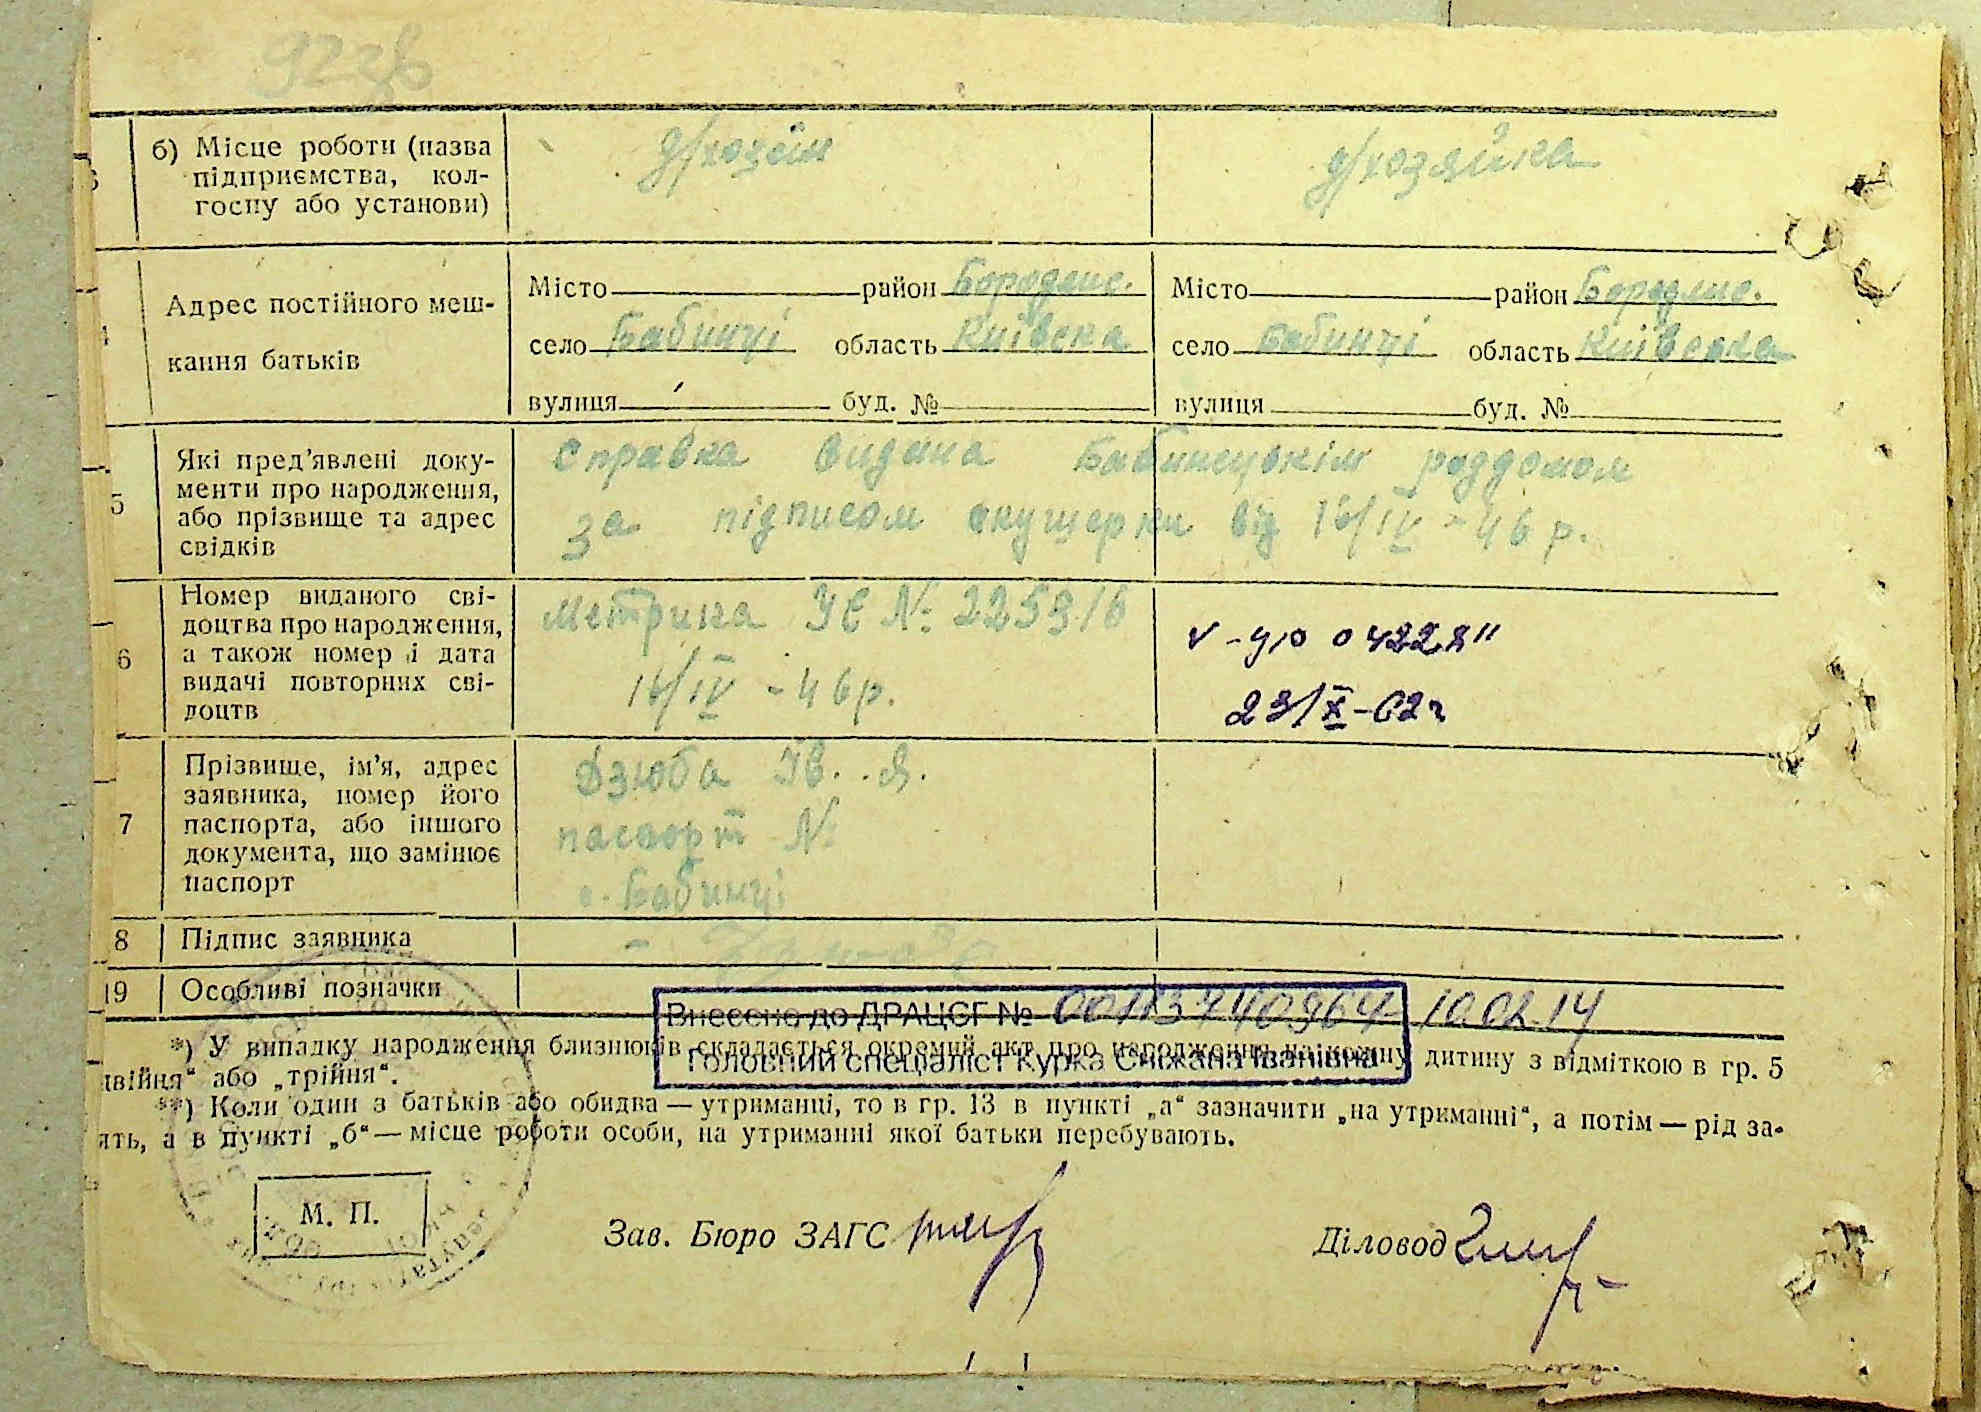 б) Місце роботи (назва
підприємства, кол-
госпу або установи)
д/хозяїн
д/хозяйка
Адрес постійного меш-
кання батьків
Місто район Бородянс. Місто район Бородянс.
село Бабинці область Київська село Бабинці область Київська
вулиця буд. № вулиця буд. №
5
Які пред'явлені доку-
менти про народження,
або прізвище та адрес
свідків
Справка видана Бабинецькім роддомом
за підписом акушерки від 16/IV - 46 р.
6
Номер виданого сві-
доцтва про народження,
а також номер і дата
видачі повторних сві-
доцтв
Метрика УЄ № 225916
16/IV - 46р.
23/X-62г
7
Прізвище, ім'я, адрес
заявника, номер його
паспорта, або іншого
документа, що замінює
паспорт
Дзюба Ів. Я.
паспорт №
с. Бабинці
8 Підпис заявника
19 Особливі позначки
Внесено до ДРАЦСГ № 00113740964 10.02.14
Головний спеціаліст Курка Сніжана Іванівна
*) У випадку народження близнюків складається окремий акт про народження на кожну дитину з відміткою в гр. 5
двійня“ або „трійня“.
**) Коли один з батьків або обидва — утриманці, то в гр. 13 в пункті „а“ зазначити „на утриманні“, а потім — рід за-
ять, а в пункті „б“ — місце роботи особи, на утриманні якої батьки перебувають.
М. П.
Зав. Бюро ЗАГС
Діловод